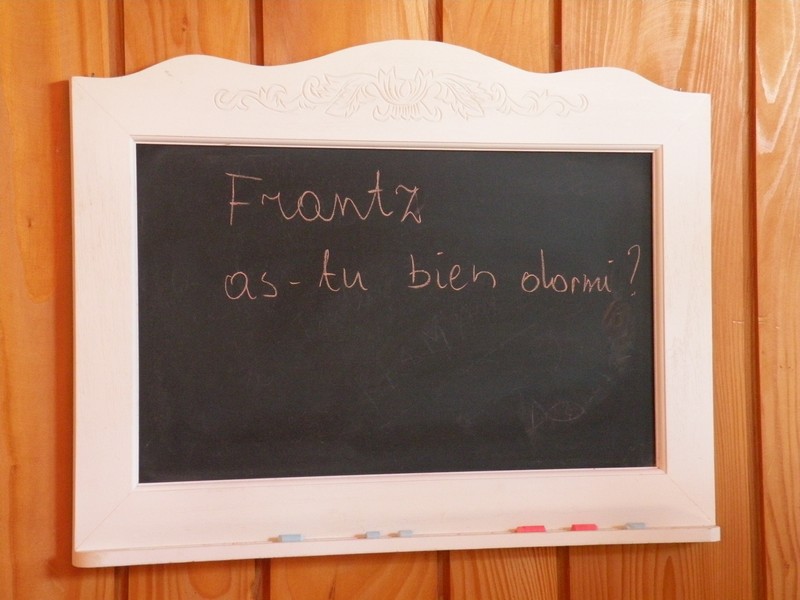 Frantz
as-tu bien dormi?